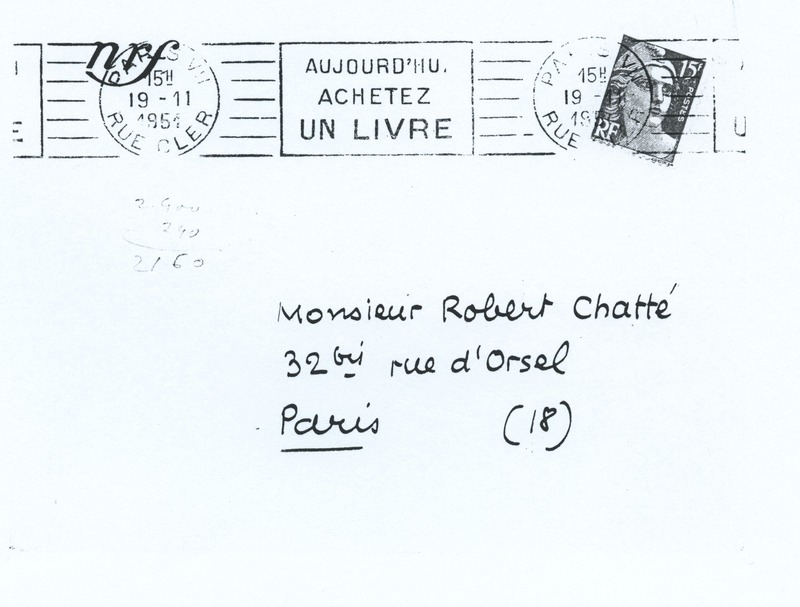 nrf
PARIS VII
15H
19 - 11
1951
RUE CLER
AUJOURD'HUI
ACHETEZ
UN LIVRE
PARIS VII
15H
19 -
RUE
15F
POSTES
RF
2.400
240
2160
Monsieur Robert Chatté
32 bis rue d'Orsel
Paris (18)